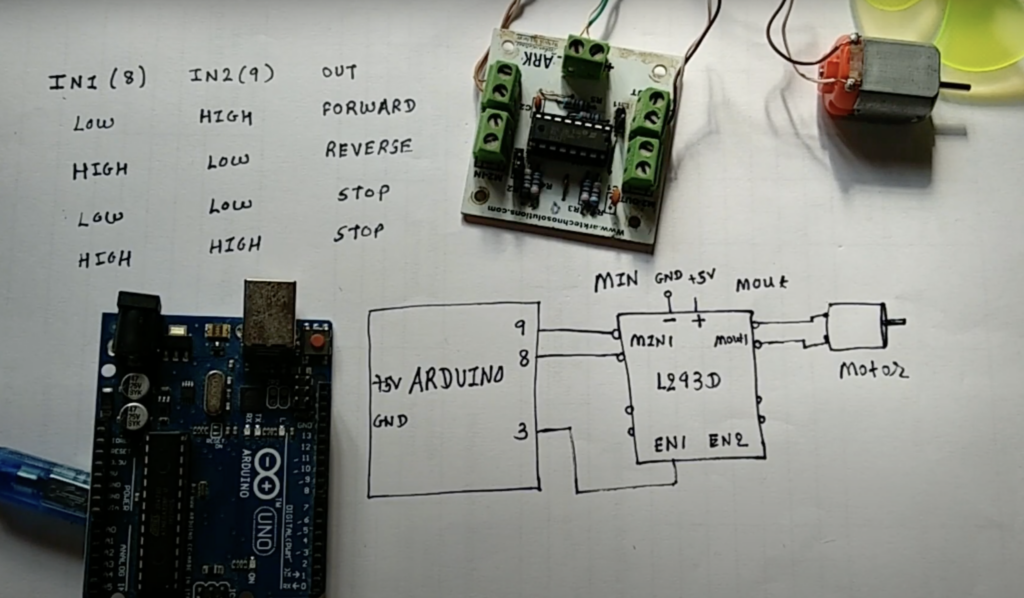 IN1 (8) IN2 (9) OUT
LOW HIGH FORWARD
HIGH LOW REVERSE
LOW LOW STOP
HIGH HIGH STOP
ARK
www.arktechnosolutions.com
MIN GND +5V Mout
- +
9 MIN1 Mout1
8
+5V ARDUINO L293D
Motor
GND
3
EN1 EN2
ARDUINO
UNO
DIGITAL
POWER
ANALOG
RESET
TX
RX
ON